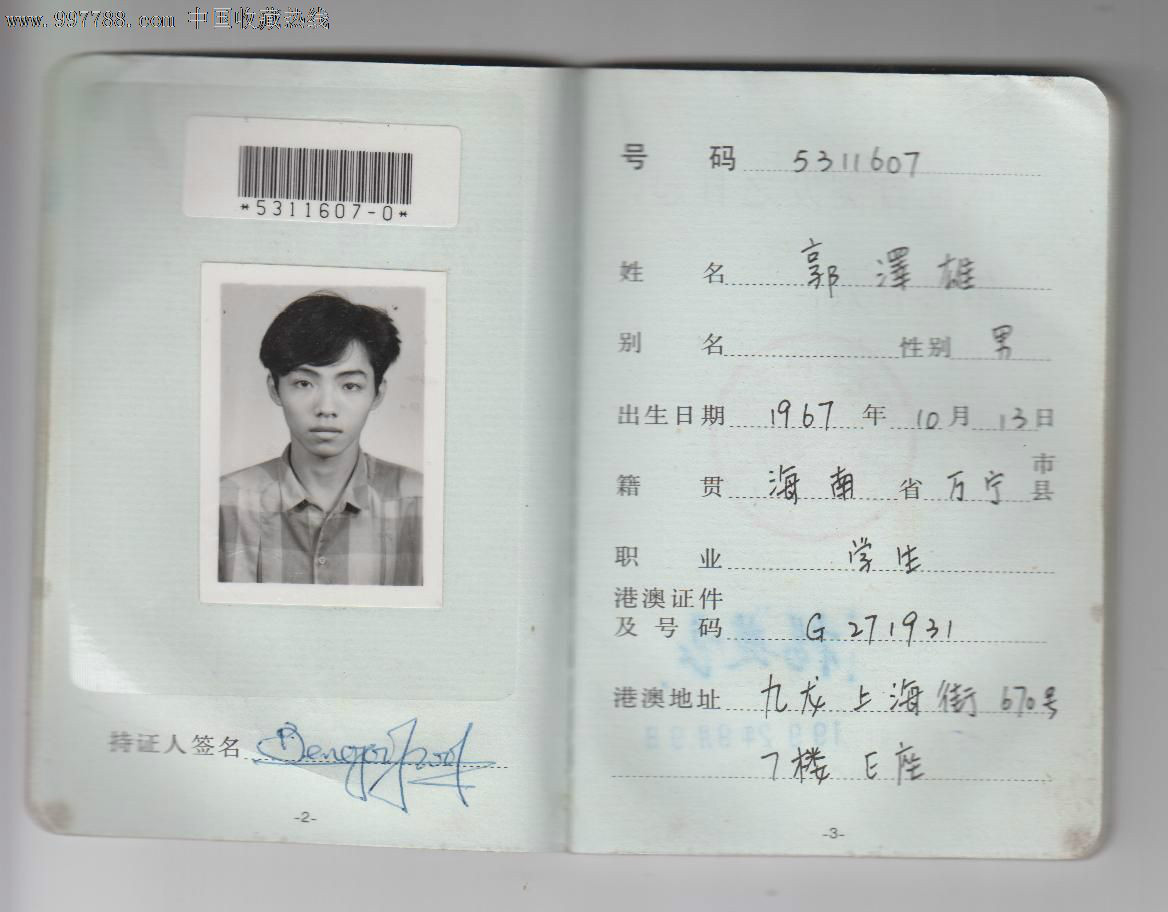 www.997788.com 中国收藏热线
*5311607-0*
持证人签名
-2-
号码 5311607
姓名 郭澤雄
别名 性别 男
出生日期 1967 年 10 月 13 日
籍贯 海南 省 万宁 市县
职业 学生
港澳证件
及号码 G271931
港澳地址 九龙上海街670号
7楼E座
-3-